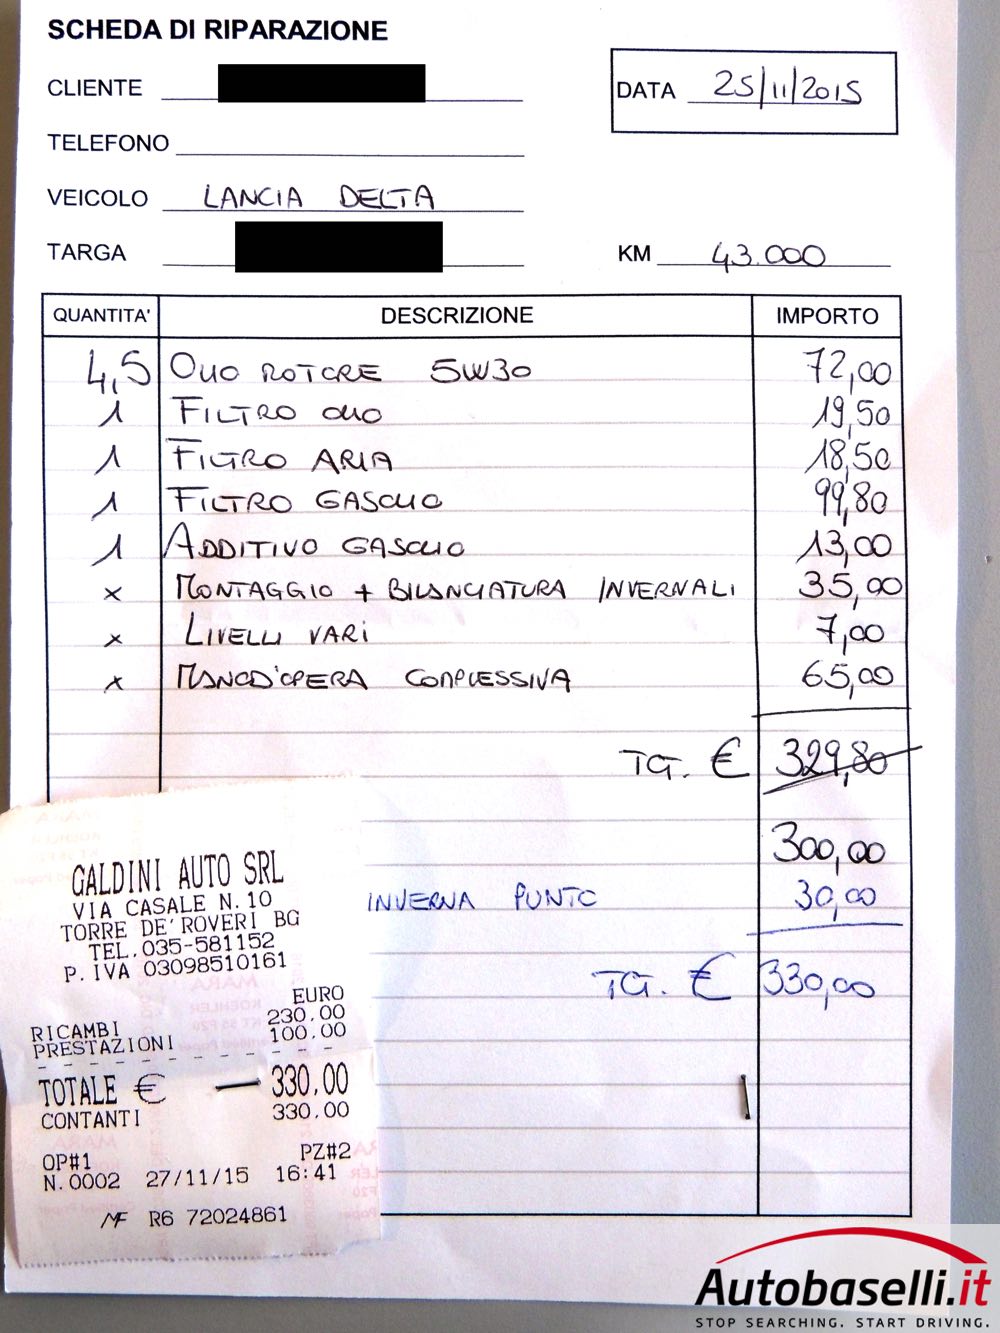 SCHEDA DI RIPARAZIONE
CLIENTE
DATA 25/11/2015
TELEFONO
VEICOLO LANCIA DELTA
TARGA
KM 43.000
QUANTITA' DESCRIZIONE IMPORTO
4,5 OLIO MOTORE 5W30 72,00
1 FILTRO OLIO 19,50
1 FILTRO ARIA 18,50
1 FILTRO GASOLIO 99,80
1 ADDITIVO GASOLIO 13,00
x MONTAGGIO + BILANCIATURA INVERNALI 35,00
x LIVELLI VARI 7,00
x MANOD'OPERA COMPLESSIVA 65,00
TG. € 329,80
300,00
INVERNA PUNTO 30,00
TG. € 330,00
GALDINI AUTO SRL
VIA CASALE N.10
TORRE DE'ROVERI BG
TEL.035-581152
P.IVA 03098510161
EURO
RICAMBI 230.00
PRESTAZIONI 100.00
TOTALE € 330,00
CONTANTI 330.00
OP#1 PZ#2
N.0002 27/11/15 16:41
MF R6 72024861
Autobaselli.it
STOP SEARCHING. START DRIVING.